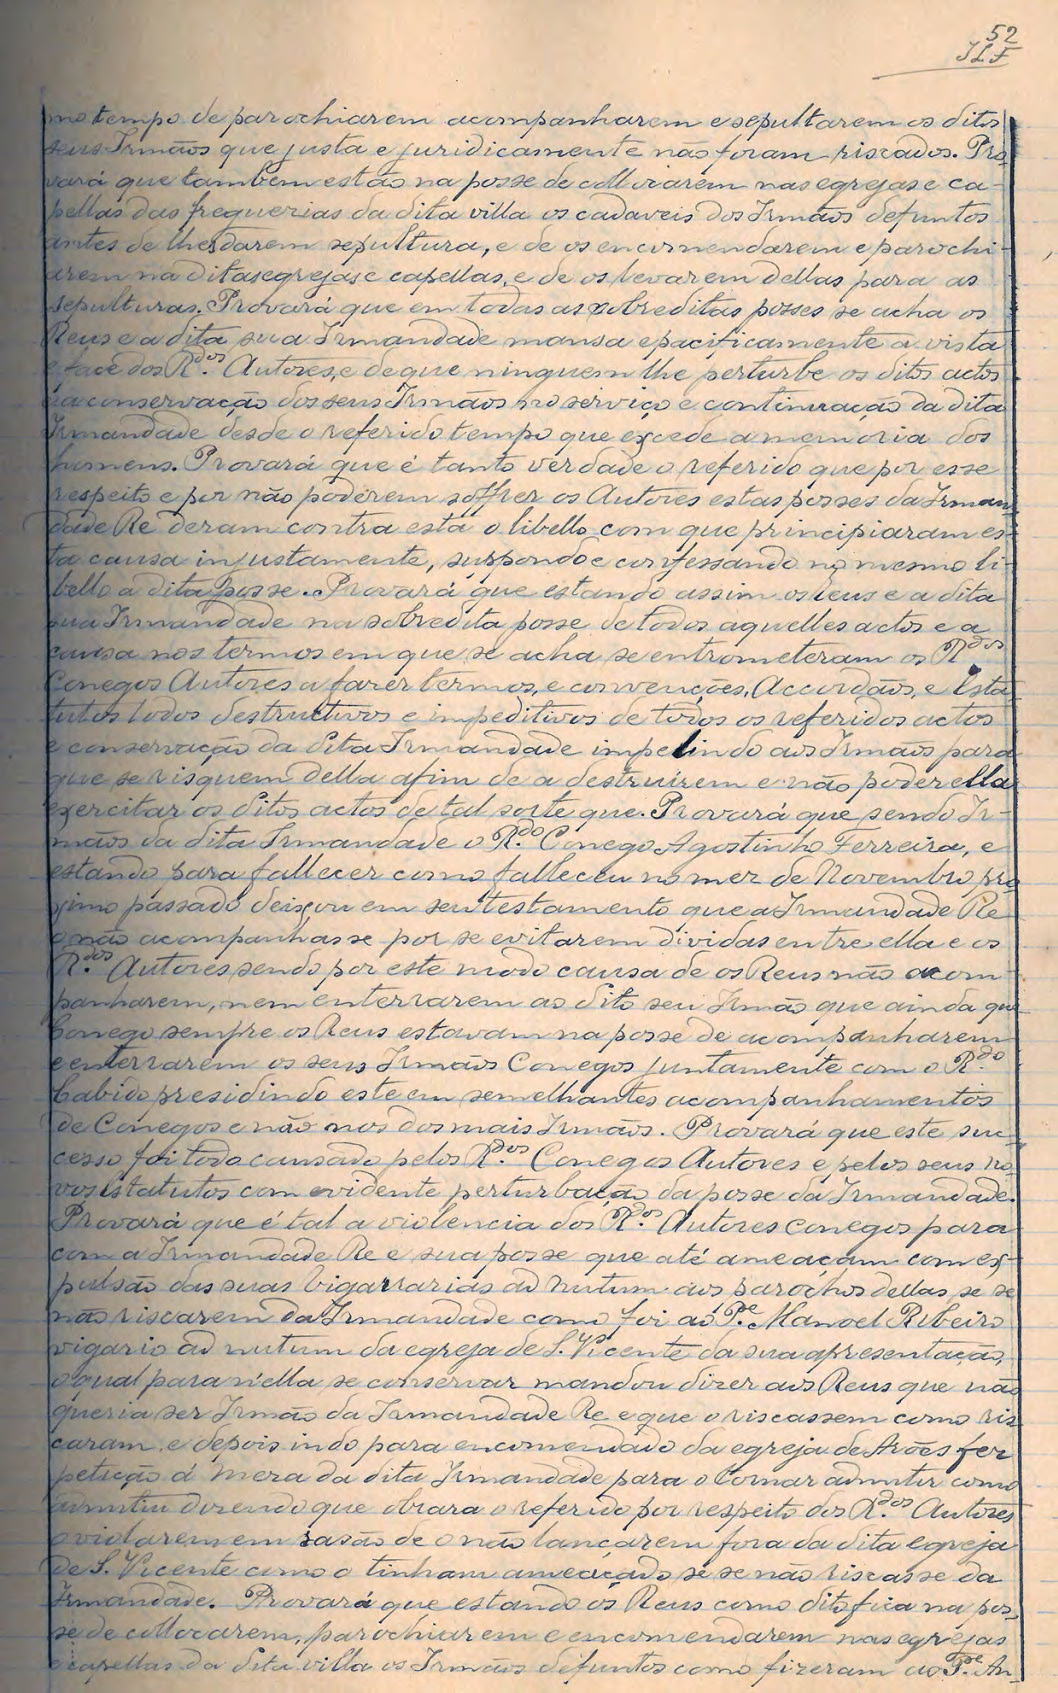 52
JLF
mo tempo de parochiarem acompanharem e sepultarem os ditos
seus Irmãos que justa e juridicamente não foram riscados. Pro-
vará que tambem estão na posse de collocarem nas egrejas e ca-
pellas das freguezias da dita villa os cadaveis dos Irmãos defuntos
antes de lhes darem sepultura, e de os encomendarem e parochi-
arem na ditas egrejas e capellas, e de os levarem dellas para as
sepulturas. Provará que em todas as sobreditas posses se acha os
Reus e a dita sua Irmandade mansa e pacificamente a vista
e face dos R.dos Autores, e de que ninguem lhe perturbe os ditos actos
na conservação dos seus Irmãos no serviço e continuação da dita
Irmandade desde o referido tempo que excede a memoria dos
homens. Provará que é tanto verdade o referido que por esse
respeito e por não poderem soffrer os Autores estas posses da Irman-
dade Re deram contra esta o libello com que principiaram es-
ta causa injustamente, suspondo e confessando no mesmo li-
bello a dita posse. Provará que estando assim os Reus e a dita
sua Irmandade na sobredita posse de todos aquelles actos e a
causa nos termos em que se acha se entrometeram os R.dos
Conegos Autores a fazer termos, e convenções, Accordãos, e Esta-
tutos todos destructivos e impeditivos de todos os referidos actos
e conservação da dita Irmandade impelindo aos Irmãos para
que se risquem della afim de a destruirem e não poder ella
exercitar os ditos actos de tal sorte que. Provará que sendo Ir-
mãos da dita Irmandade o R.do Conego Agostinho Ferreira, e
estando para fallecer como falleceu no mez de Novembro pro-
ximo passado deixou em seu testamento que a Irmandade Re
o não acompanhasse por se evitarem dividas entre ella e os
R.dos Autores sendo por este modo causa de os Reus não acom-
panharem, nem enterrarem ao dito seu Irmão que ainda que
Conego sempre os Reus estavam na posse de acompanharem
e enterrarem os seus Irmãos Conegos juntamente com o R.do
Cabido presidindo este em semelhantes acompanhamentos
de Conegos e não nos dos mais Irmãos. Provará que este suc-
cesso foi todo causado pelos R.dos Conegos Autores e pelos seus no-
vos estatutos com evidente perturbação da posse da Irmandade.
Provará que é tal a violencia dos R.dos Autores conegos para
com a Irmandade Re e sua posse que até ameaçam com ex-
pulsão das suas vigarrarias ad nutum aos parochos dellas, se se
não riscarem da Irmandade como foi ao P.e Manoel Ribeiro
vigario ad nutum da egreja de S. Vicente da sua apresentação,
o qual para n'ella se conservar mandou dizer aos Reus que não
queria ser Irmão da Irmandade Re e que o riscassem como ris-
caram e depois indo para encomendado da egreja de Arões fez
petição á meza da dita Irmandade para o tornar admitir como
admitiu dizendo que obrara o referido por respeito dos R.dos Autores
o violarem em rasão de o não lançarem fora da dita egreja
de S. Vicente como o tinham ameaçado se se não riscasse da
Irmandade. Provará que estando os Reus como dito fica na pos-
se de collocarem, parochiarem e encomendarem nas egrejas
e capellas da dita villa os Irmãos defuntos como fizeram ao P.e An-